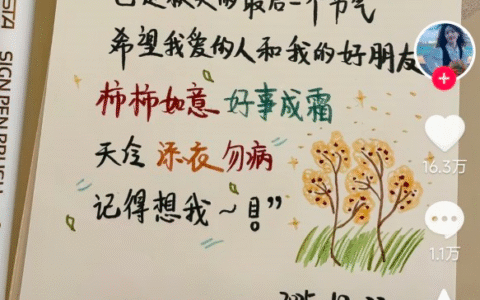 已是秋天的最后一个节气
希望我爱的人和我的好朋友
柿柿如意 好事成霜
天冷 添衣 勿病
记得想我～目”
SIGN PEN BRUSH
16.3万
1.1万